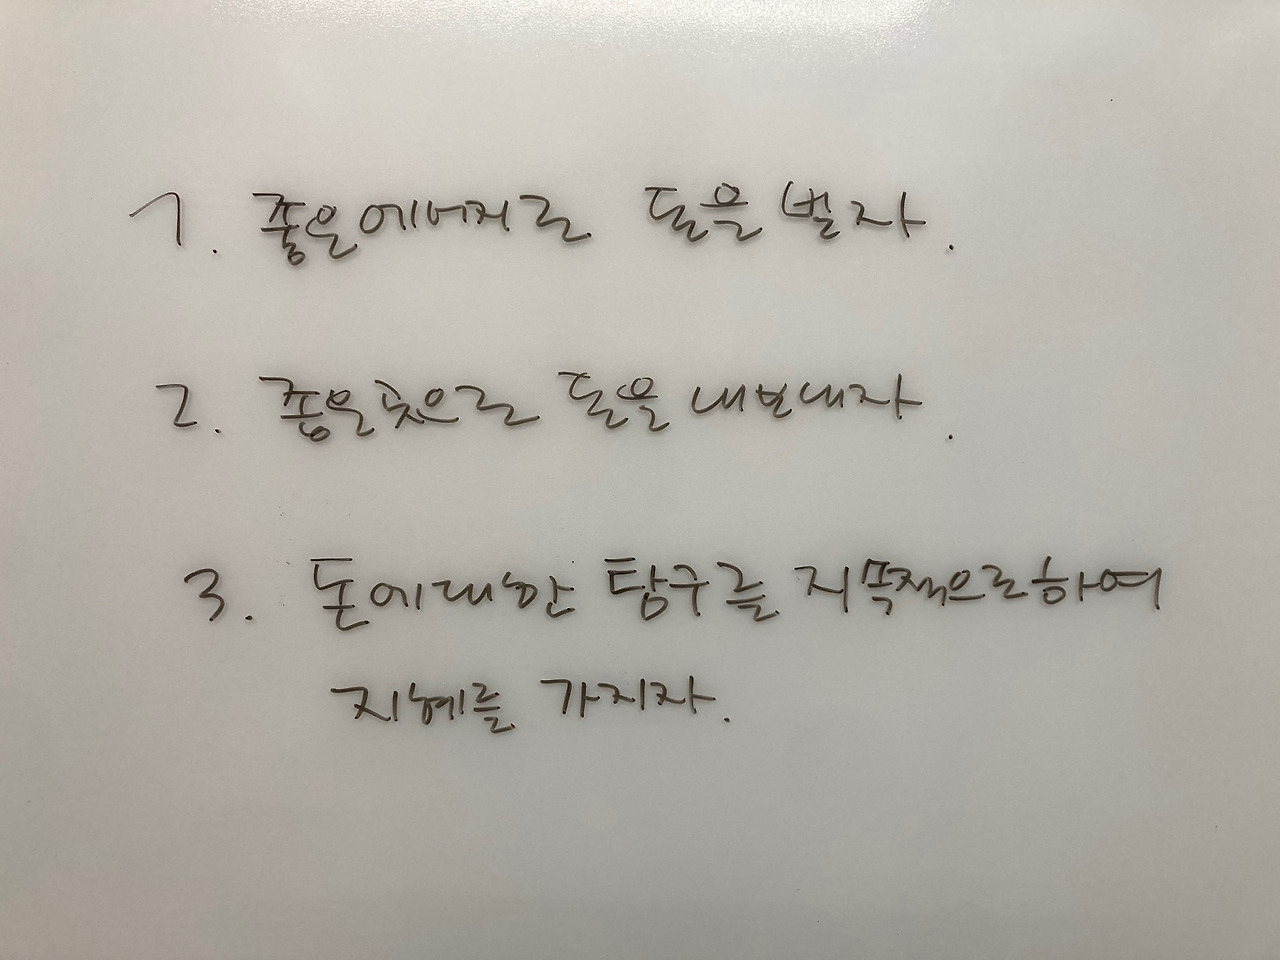 1. 좋은에너지로 돈을 벌자.
2. 좋은곳으로 돈을 내보내자.
3. 돈에대한 탐구를 지속적으로하여
지혜를 가지자.